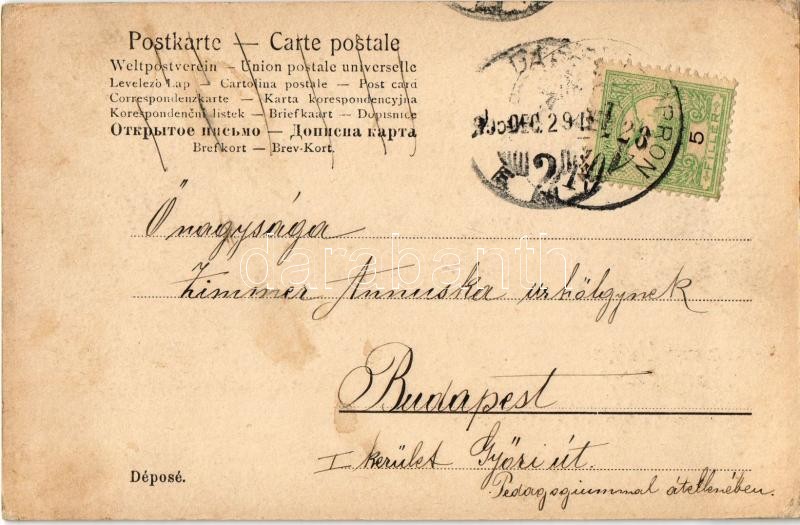 Postkarte — Carte postale
Weltpostverein — Union postale universelle
Levelező-Lap — Cartolina postale — Post card
Correspondenzkarte — Karta korespondencyjna
Korespondenční listek — Briefkaart — Dopisnice
Открытое письмо — Дописна карта
Brefkort — Brev-Kort.
905 DEC. 29
PRON
5
FILLER
Őnagysága
Zimmer Annuska urhölgynek
darabanth
Budapest
I kerület Győri út.
Pedagogiummal átellenében.
Déposé.